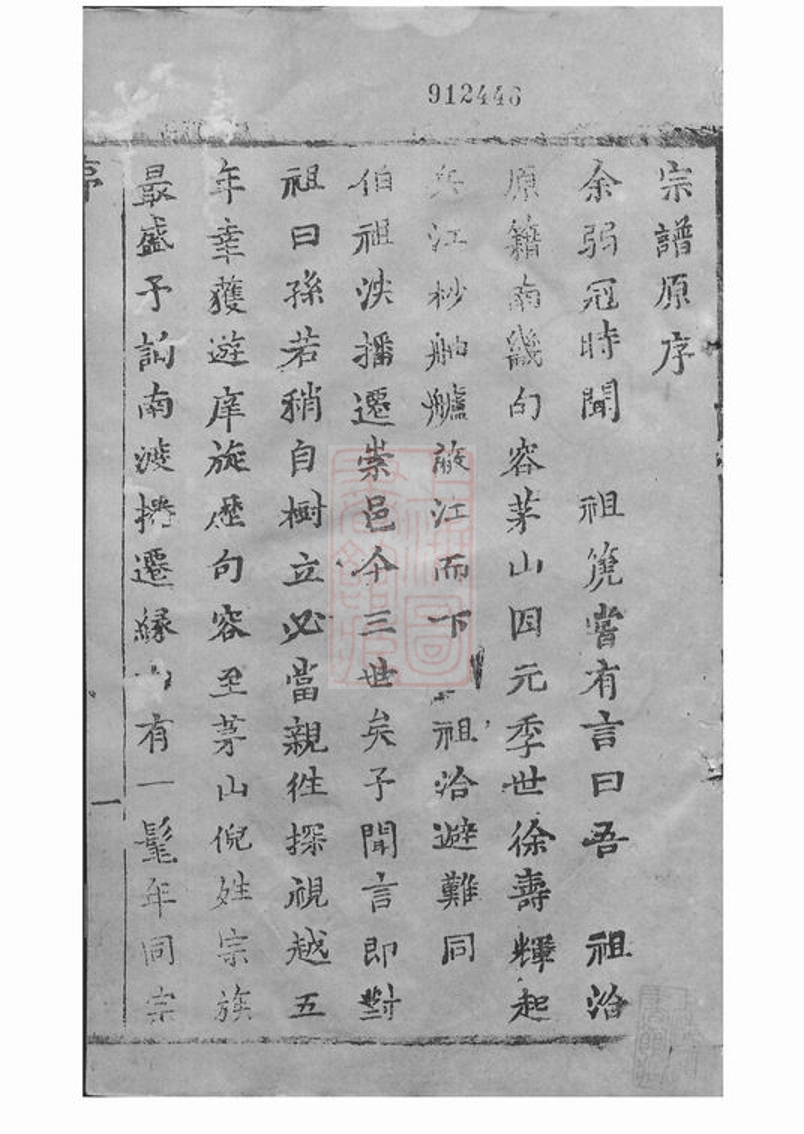 912446
宗譜原序
余弱冠時聞 祖箎嘗有言曰吾 祖治
原籍南畿句容茅山因元季世徐壽輝起
兵江 舳艫蔽江而下 祖洽避難同
伯祖泱播遷崇邑今三世矣予聞言即對
祖曰孫若稍自樹立必當親徃探視越五
年幸獲遊庠旋歷句容至茅山倪姓宗族
最盛予詢南渡播遷緣 有一髦年同宗
序
一